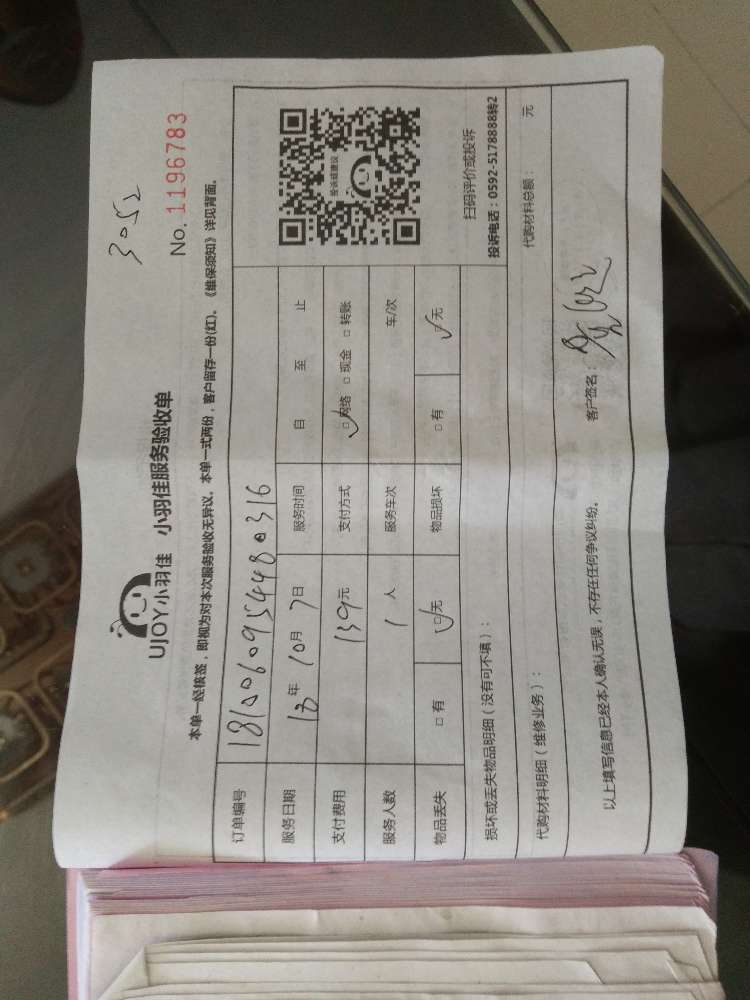 3052
UJOY小羽佳 小羽佳服务验收单
No. 1196783
本单一经核签，即视为对本次服务验收无异议。本单一式两份，客户留存一份(红)。《维保须知》详见背面。
订单编号 1810060954480316
服务日期 18年 10月 7日 服务时间 自 至 止
支付费用 159元 支付方式 ☑网络 □现金 □转账
服务人数 1 人 服务车次 车/次
物品丢失 □有 ☑无 物品损坏 □有 ☑无
投诉或建议
扫码评价或投诉
投诉电话：0592-5178888转2
损坏或丢失物品明细（没有可不填）：
代购材料明细（维修业务）： 代购材料总额： 元
以上填写信息已经本人确认无误，不存在任何争议纠纷。 客户签名：